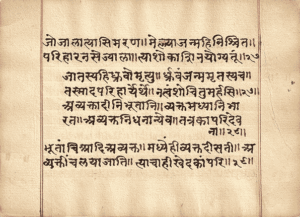 जो जाला त्यासि मरण॥ मेल्या जन्महि निश्चित॥
परिहार नसे ज्याला॥ त्याशोकासि न योग्य तूं॥२७
जातस्य हि ध्रुवो मृत्युर्ध्रुवं जन्म मृतस्य च॥
तस्मादपरिहार्येर्थे॥ न त्वं शोचितुमर्हसि॥२७॥
अव्यक्तादीनि भूतानि॥ व्यक्तमध्यानि भा
रत॥ अव्यक्तनिधनान्येव॥ तत्र का परिदेव
ना॥२८॥
भूतांचि आदि अव्यक्त॥ मध्येही व्यक्त दीसती॥ अ
व्यक्तींच लया जाति॥ त्याचा हि खेद कां परि॥२८॥